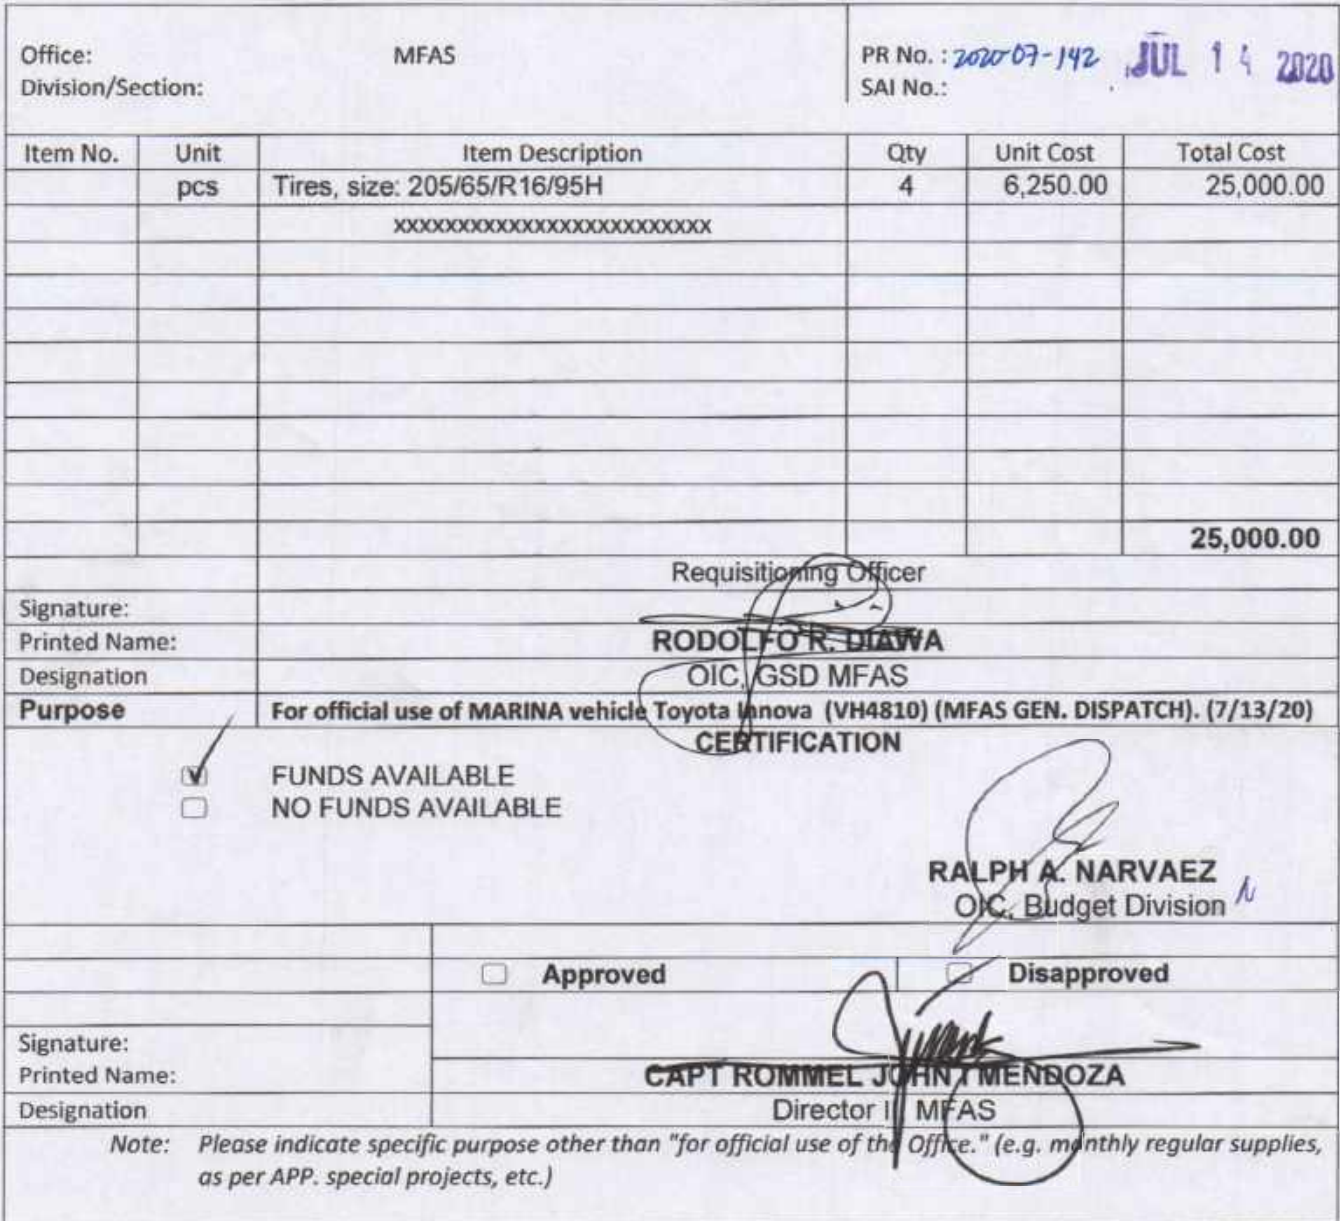 Office: MFAS PR No. : 2020-07-142 JUL 14 2020
Division/Section: SAI No.:
Item No. Unit Item Description Qty Unit Cost Total Cost
pcs Tires, size: 205/65/R16/95H 4 6,250.00 25,000.00
xxxxxxxxxxxxxxxxxxxxxxxxx
25,000.00
Requisitioning Officer
Signature:
Printed Name: RODOLFO R. DIAWA
Designation OIC, GSD MFAS
Purpose For official use of MARINA vehicle Toyota Innova (VH4810) (MFAS GEN. DISPATCH). (7/13/20)
CERTIFICATION
FUNDS AVAILABLE
NO FUNDS AVAILABLE
RALPH A. NARVAEZ
OIC, Budget Division
Approved Disapproved
Signature:
Printed Name: CAPT ROMMEL JOHN MENDOZA
Designation Director MFAS
Note: Please indicate specific purpose other than "for official use of the Office." (e.g. monthly regular supplies,
as per APP. special projects, etc.)